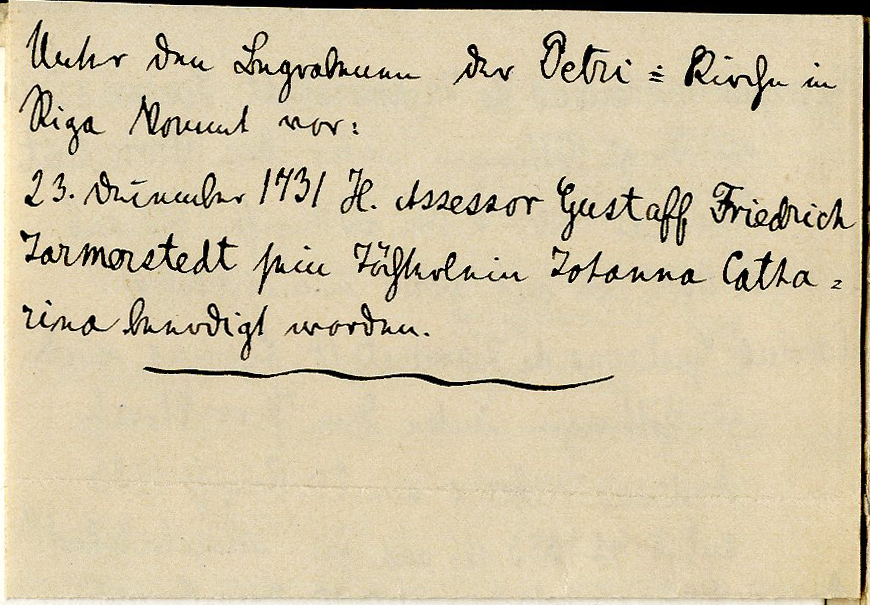 Unter den Begrabenen der Petri = Kirche in
Riga kommt vor:
23. Dezember 1731 H. Assessor Gustaff Friedrich
Jarmerstedt sein Töchterlein Johanna Catha =
rina beerdigt worden.